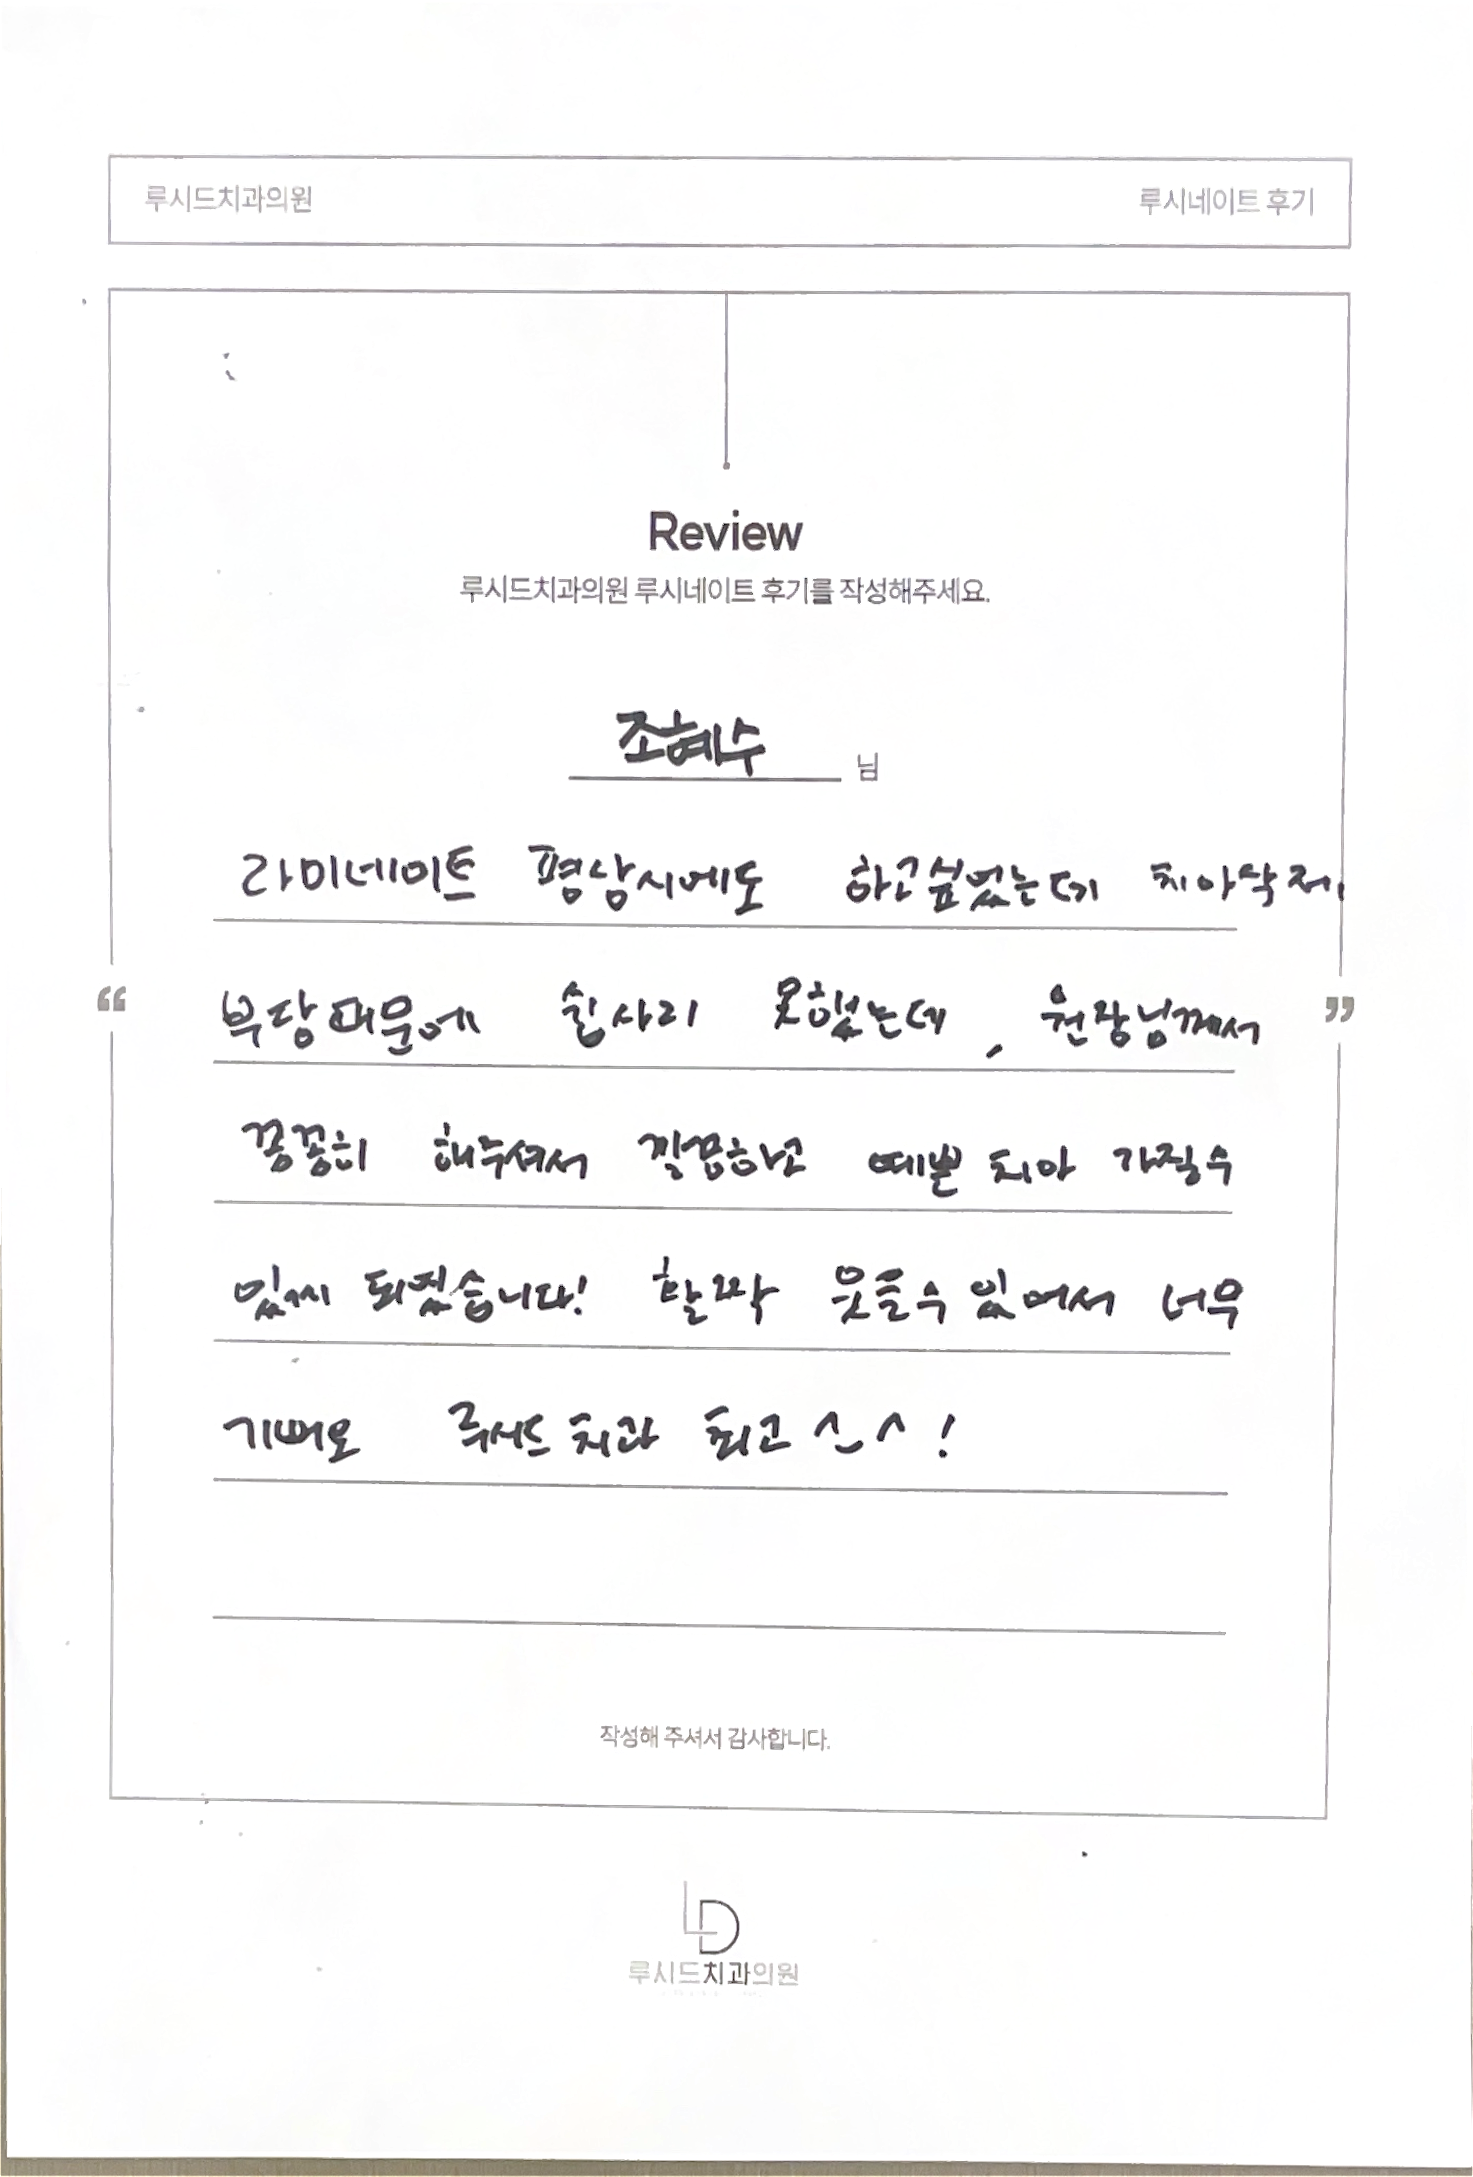 루시드치과의원
루시네이트 후기
Review
루시드치과의원 루시네이트 후기를 작성해주세요.
조혜수 님
라미네이트 평상시에도 하고싶었는데 치아삭제
“ 부담때문에 쉽사리 못했는데, 원장님께서 ”
꼼꼼히 해주셔서 깔끔하고 예쁜 치아 가질수
있게 되었습니다! 활짝 웃을수 있어서 너무
기뻐요 루시드 치과 최고 ^_^!
작성해 주셔서 감사합니다.
LD
루시드치과의원